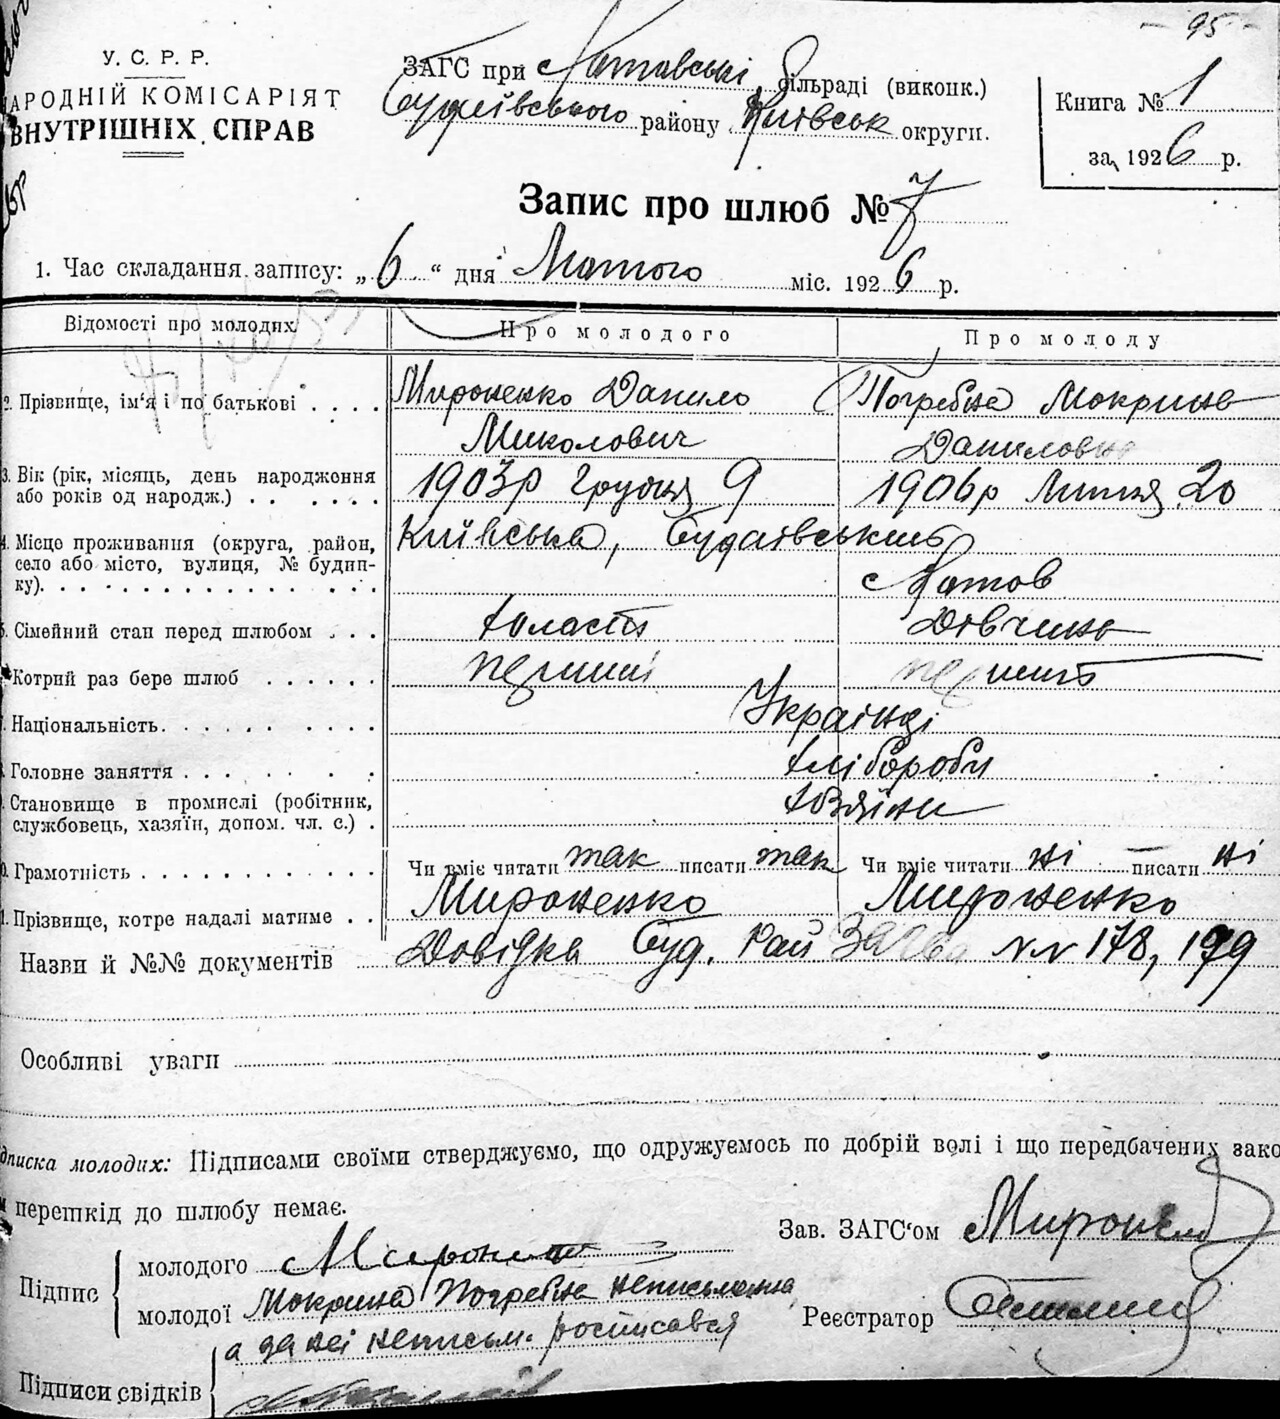 95
У. С. Р. Р.
АРОДНІЙ КОМІСАРІЯТ
ВНУТРІШНІХ СПРАВ
ЗАГС при сільраді (виконк.)
району Київськ округи.
Книга № 1
за 1926 р.
Запис про шлюб № 7
1. Час складання запису: „6“ дня Лютого міс. 1926 р.
Відомості про молодих
Про молодого
Про молоду
2. Прізвище, ім'я і по батькові
Мироненко Данило
Миколович
Погребна Мокрина
Даниловна
3. Вік (рік, місяць, день народження
або років од народж.)
1903р Грудня 9
1906р Липня 20
4. Місце проживання (округа, район,
село або місто, вулиця, № будин-
ку).
Київська, Будаївський
Сімейний стан перед шлюбом
Дівчина
Котрий раз бере шлюб
перший
перший
Національність.
Українці
Головне заняття
хлібороби
Становище в промислі (робітник,
службовець, хазяїн, допом. чл. с.)
хазяїни
Грамотність
Чи вміє читати так писати так
Чи вміє читати ні писати ні
Прізвище, котре надалі матиме
Мироненко
Мироненко
Назви й №№ документів
Довідка Буд. Рай N.N 178, 179
Особливі уваги
дписка молодих: Підписами своїми стверджуємо, що одружуємось по добрій волі і що передбачених зако
перешкід до шлюбу немає.
Зав. ЗАГС'ом
Підпис
молодого
молодої Мокрина Погребна неписьменна
а за неї неписьм. росписався
Реєстратор
Підписи свідків